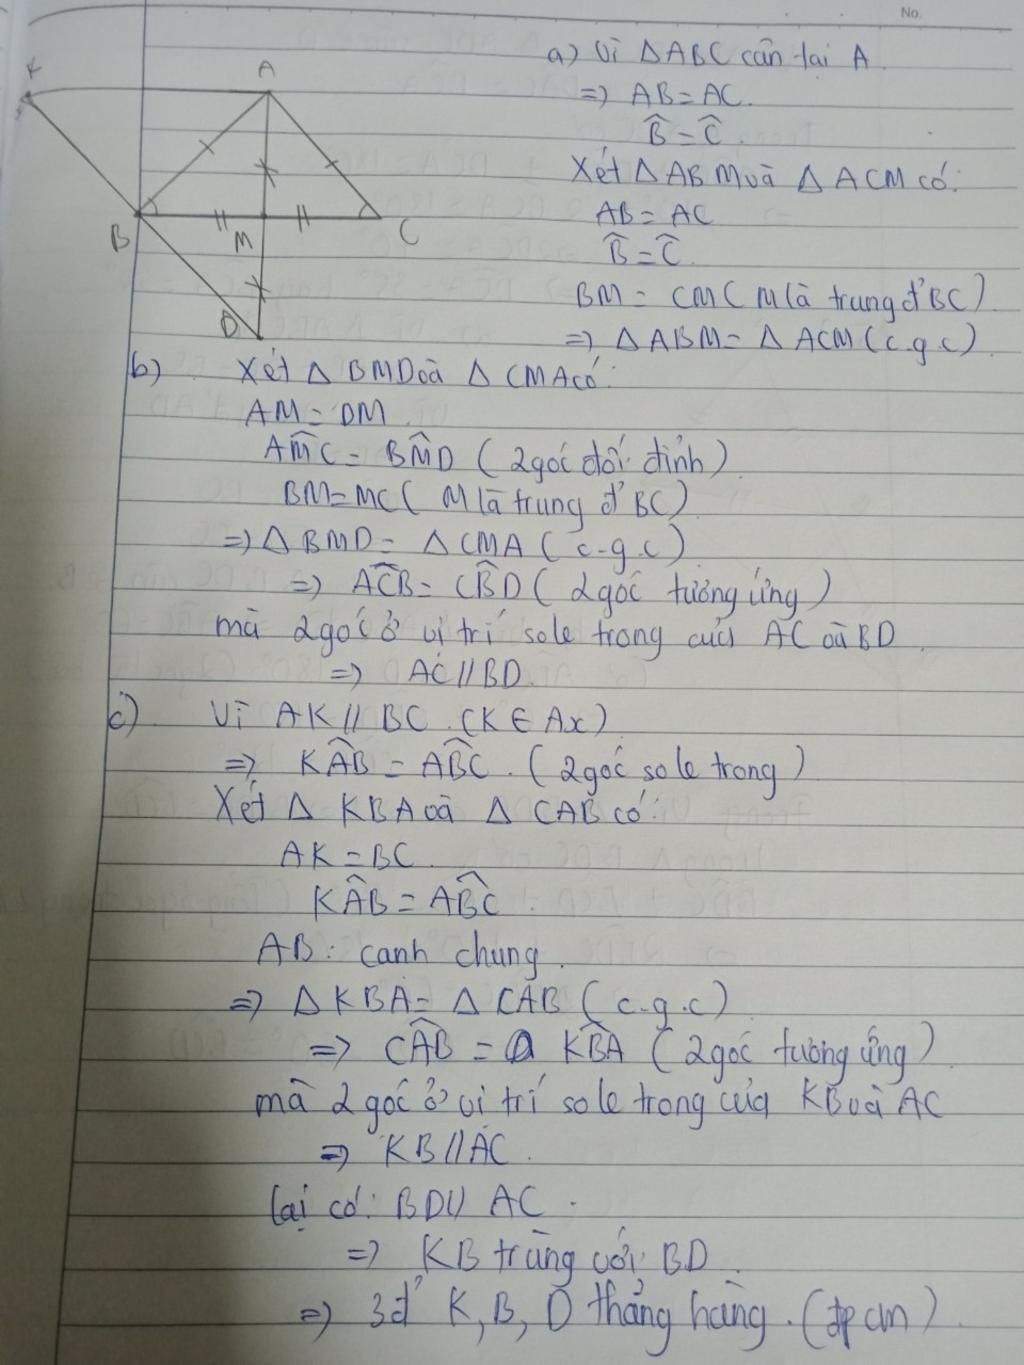 No.
K
A
B
M
C
D
a) Vì △ABC cân tại A
=> AB = AC.
B̂ = Ĉ.
Xét △ABM và △ACM có:
AB = AC
B̂ = Ĉ.
BM = CM ( M là trung đ' BC)
=> △ABM = △ACM (c.g.c)
b) Xét △BMD và △CMA có:
AM = DM.
AM̂C = BM̂D ( 2 góc đối đỉnh)
BM = MC ( M là trung đ' BC)
=> △BMD = △CMA ( c-g.c)
=> AĈB = CB̂D ( 2 góc tương ứng)
mà 2 góc ở vị trí so le trong của AC và BD.
=> AC // BD.
c) Vì AK // BC. (K ∈ Ax)
=> KÂB = AB̂C. ( 2 góc so le trong)
Xét △KBA và △CAB có:
AK = BC.
KÂB = AB̂C.
AB: cạnh chung.
=> △KBA = △CAB ( c.g.c)
=> CÂB = KB̂A ( 2 góc tương ứng)
mà 2 góc ở vị trí so le trong của KB và AC
=> KB // AC.
lại có: BD // AC.
=> KB trùng với BD.
=> 3 đ' K, B, D thẳng hàng. (đpcm)